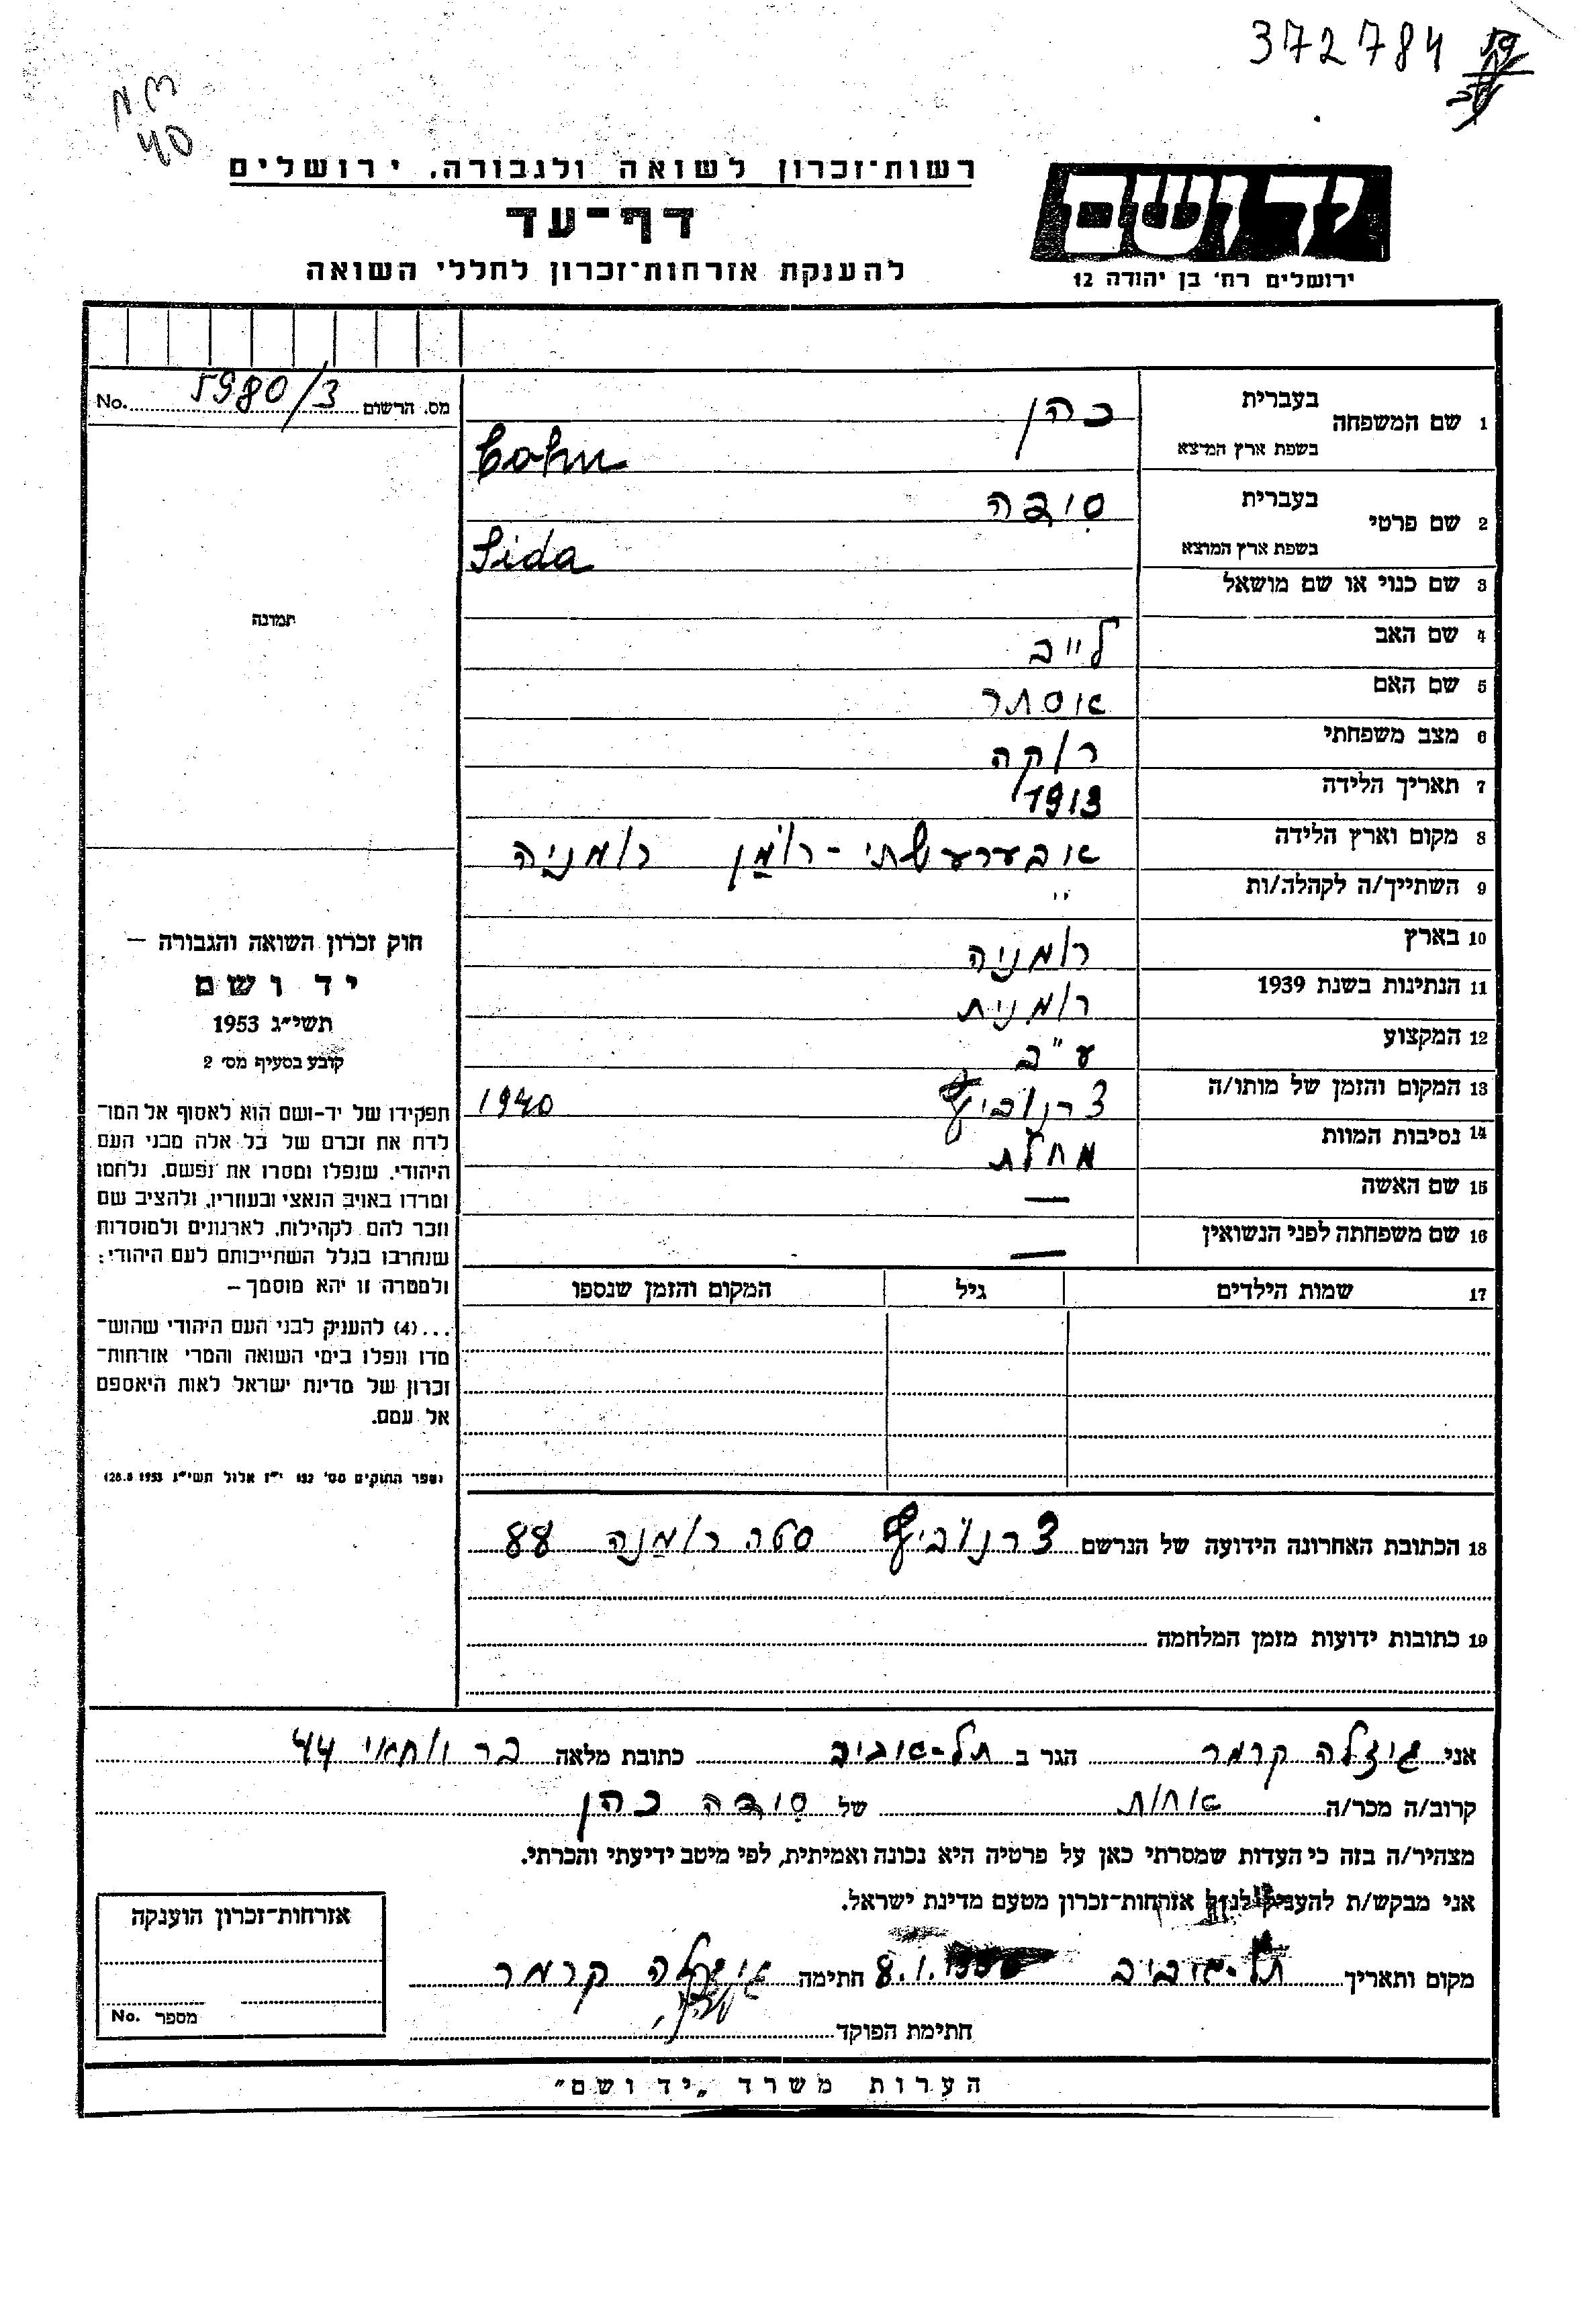 372784
40
רשות־זכרון לשואה ולגבורה, ירושלים
דף־עד
להענקת אזרחות־זכרון לחללי השואה
יד ושם
ירושלים רח' בן יהודה 12
No. 5980/3 מס. הרשום
1 שם המשפחה בעברית כהן
בשפת ארץ המוצא Cohn
2 שם פרטי בעברית סידה
בשפת ארץ המוצא Sida
תמונה
3 שם כנוי או שם מושאל
4 שם האב לייב
5 שם האם אסתר
6 מצב משפחתי רוקה
7 תאריך הלידה 1913
8 מקום וארץ הלידה רומן רומניה
9 השתייך/ה לקהלה/ות "
10 בארץ רומניה
11 הנתינות בשנת 1939 רומנית
12 המקצוע ע"ב
13 המקום והזמן של מותו/ה 1940
14 נסיבות המוות מחלת
15 שם האשה —
16 שם משפחתה לפני הנשואין —
17 שמות הילדים גיל המקום והזמן שנספו
חוק זכרון השואה והגבורה —
יד ושם
תשי״ג 1953
קובע בסעיף מס׳ 2
תפקידו של יד-ושם הוא לאסוף אל המו־
לדת את זכרם של כל אלה מבני העם
היהודי, שנפלו ומסרו את נפשם, נלחמו
ומרדו באויב הנאצי ובעוזריו, ולהציב שם
וזכר להם לקהילות, לארגונים ולמוסדות
שנחרבו בגלל השתייכותם לעם היהודי;
ולמטרה זו יהא מוסמך –
...(4) להעניק לבני העם היהודי שהוש־
מדו ונפלו בימי השואה והמרי אזרחות־
זכרון של מדינת ישראל לאות היאספם
אל עמם.
(ספר החוקים מס׳ 132 י״ז אלול תשי״ג 28.8.1953)
18 הכתובת האחרונה הידועה של הנרשם סטה רומנה 88
19 כתובות ידועות מזמן המלחמה
אני גיזלה קרמר הגר ב תל-אביב כתובת מלאה בר יוחאי 44
קרוב/ה מכר/ה אחות של סידה כהן
מצהיר/ה בזה כי העדות שמסרתי כאן על פרטיה היא נכונה ואמיתית, לפי מיטב ידיעתי והכרתי.
אני מבקש/ת להעניק לנ"ל אזרחות־זכרון מטעם מדינת ישראל.
מקום ותאריך תל-אביב 8.1. חתימה קרמר
חתימת הפוקד
אזרחות־זכרון הוענקה
מספר No.
הערות משרד „יד ושם"